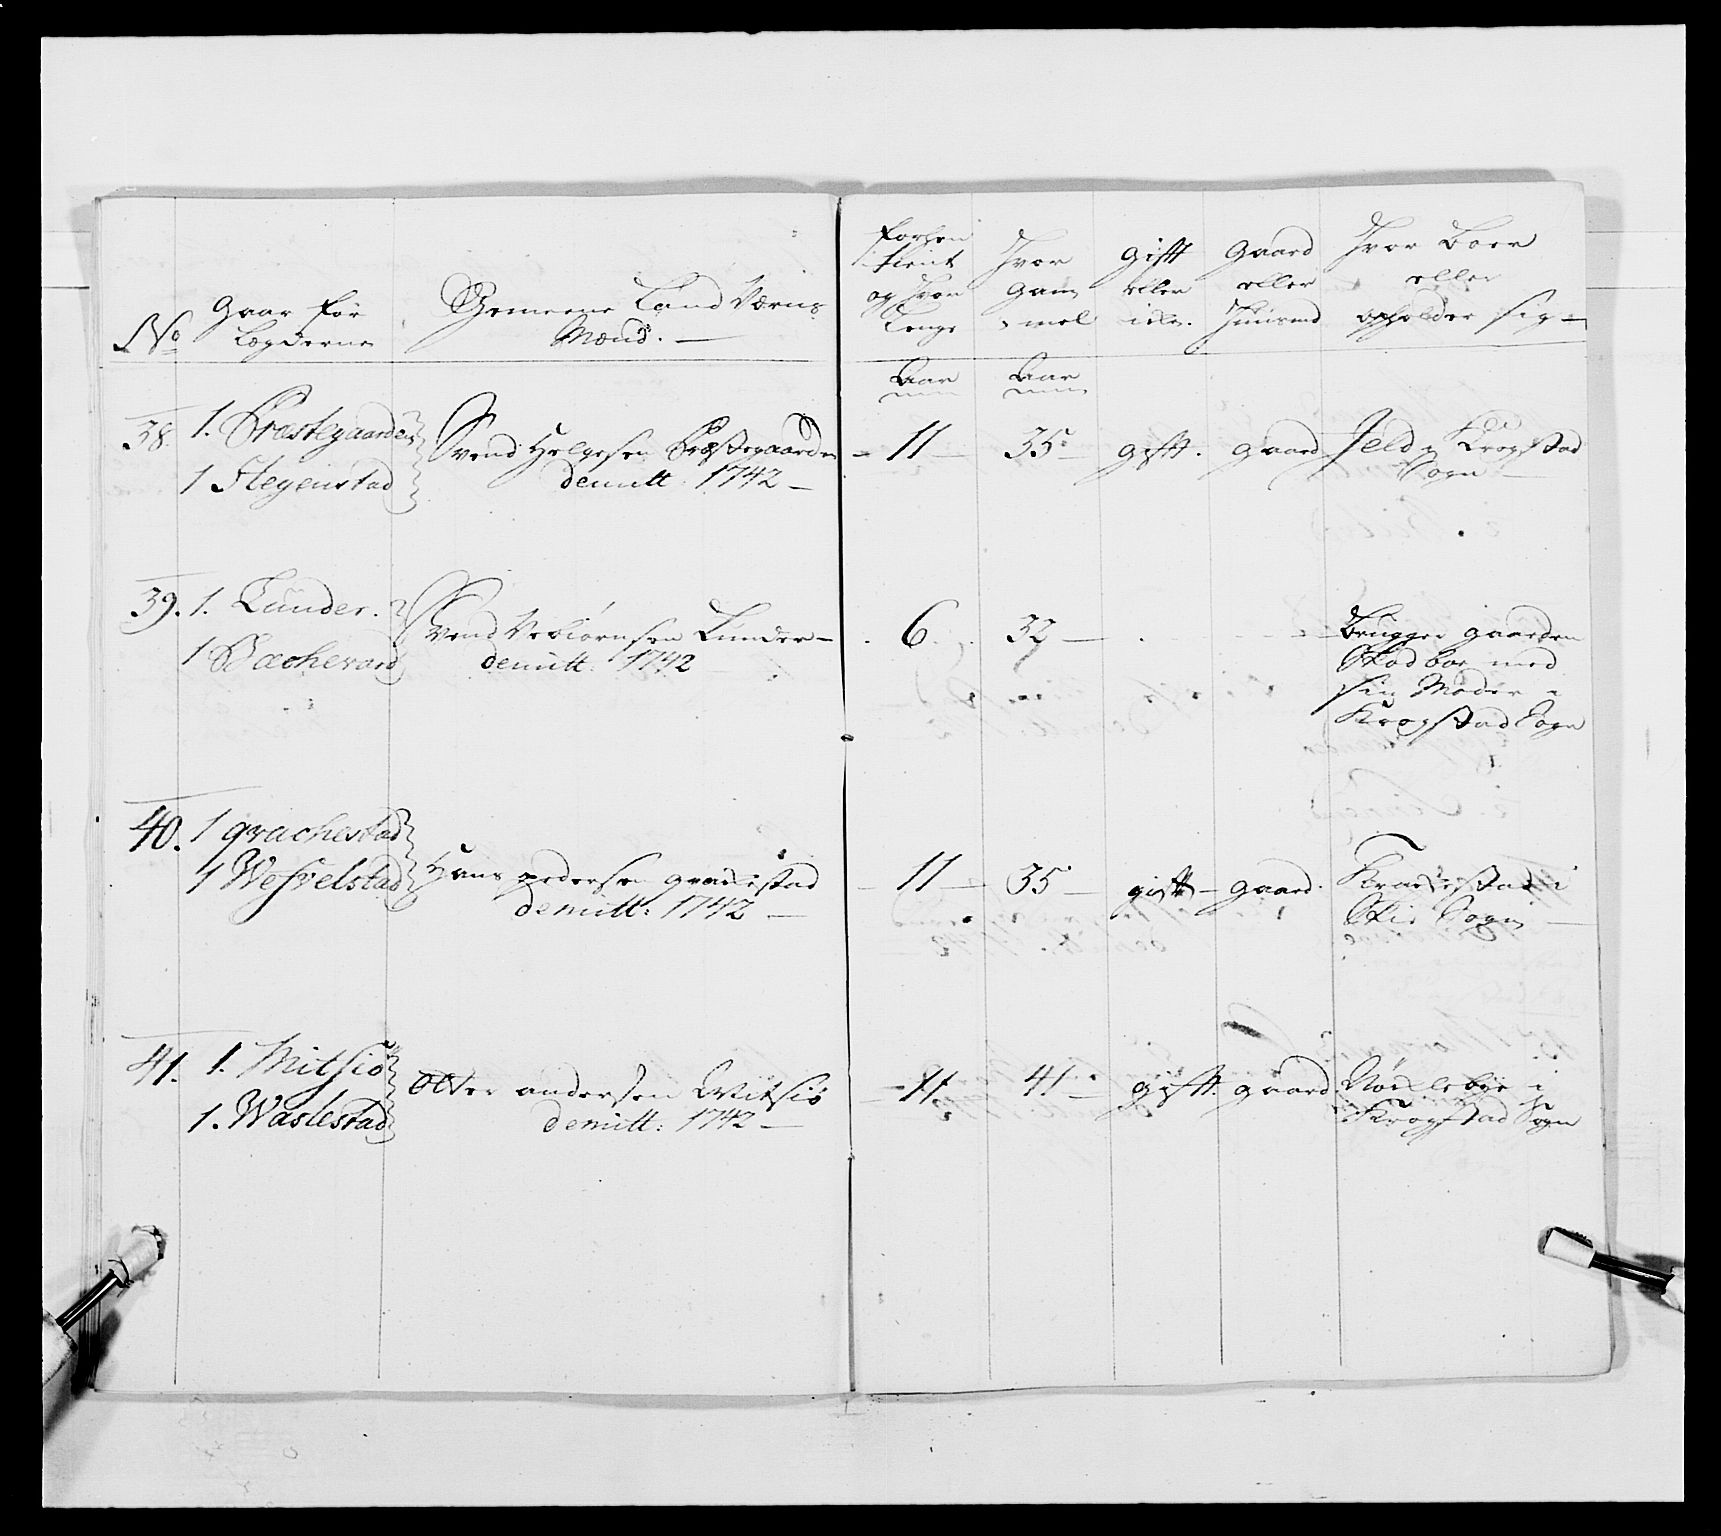 No
Gaar for
Lægderne
Gemeene Land Værns
Mænd. —
forhen
tient
og Hvor
Lenge
Hvor
Gam
mel
Gift
eller
Gaard
eller
Huusmd
Hvor Boer
eller
opholder sig —
Aar
Aar
38. 1. Præstegaarden
1 Hegenstad
Svend Helgesen Præstegaarden
demitt: 1742 —
11 — 35 gift. gaard Jeld i Krogstad
Sogn —
39. 1. Lunder.
1 Bacherard
Svend Vebiørnsen Lunder —
demitt: 1742
6 32 —
Brugger gaarden
Stad boe med
sin Moder i
Krogstad Sogn
40. 1 grachestad
1 Wefvelstad
Hans pedersen grachestad
demitt: 1742 —
11 — 35 — gift — gaard. Krachestad i
Skie Sogn —
41. 1. Mitsiö
1. Waslestad
Otter andersen Witsiö
demitt: 1742 —
— 11. 41 — gift. gaard Nör lebye i
Krogstad Sogn